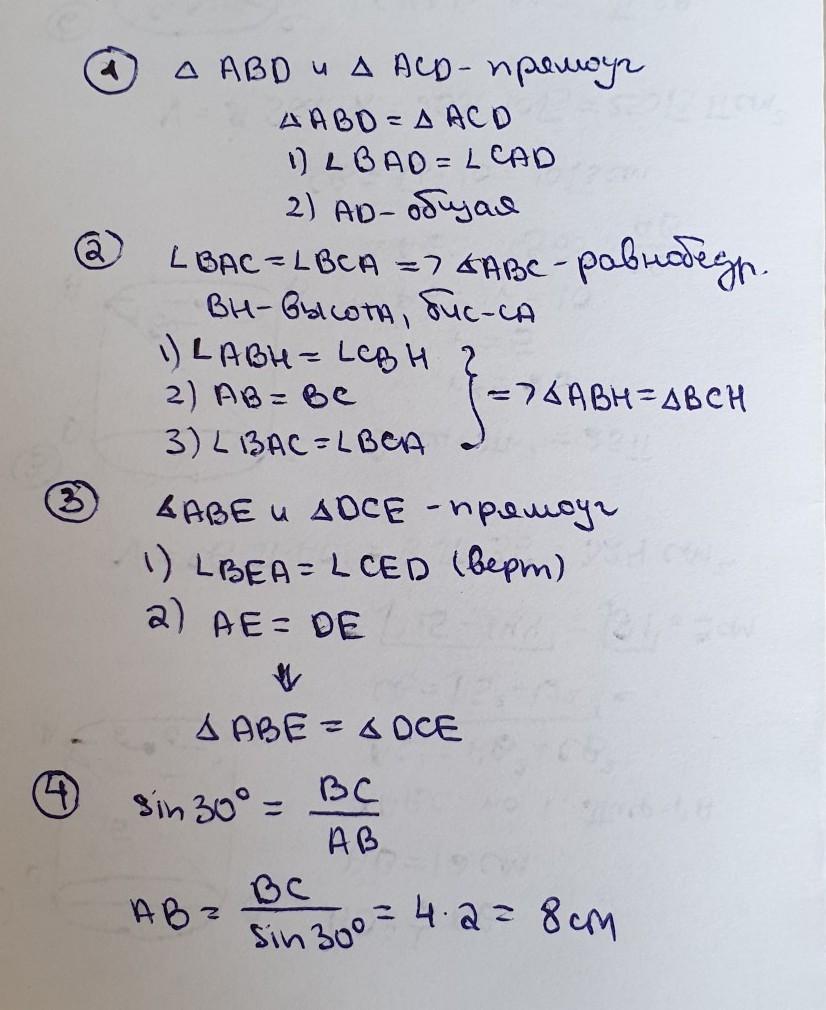 ① △ ABD и △ ACD - прямоуг
△ABD = △ ACD
1) ∠BAD = ∠CAD
2) AD - общая
② ∠BAC = ∠BCA => △ABC - равнобедр.
BH - высота, бис-са
1) ∠ABH = ∠CBH
2) AB = BC } => △ABH = △BCH
3) ∠BAC = ∠BCA
③ △ABE и △DCE - прямоуг
1) ∠BEA = ∠CED (верт)
2) AE = DE
⇓
△ ABE = △ DCE
④ sin 30° = BC / AB
AB = BC / sin 30° = 4 · 2 = 8 см